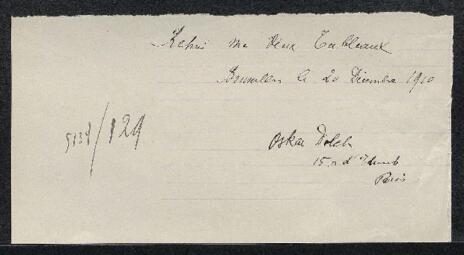 Retiré mes deux Tableaux
Bruxelles le 20 Décembre 1910
5139/129
Oskar Dolch
15, r d'
Paris